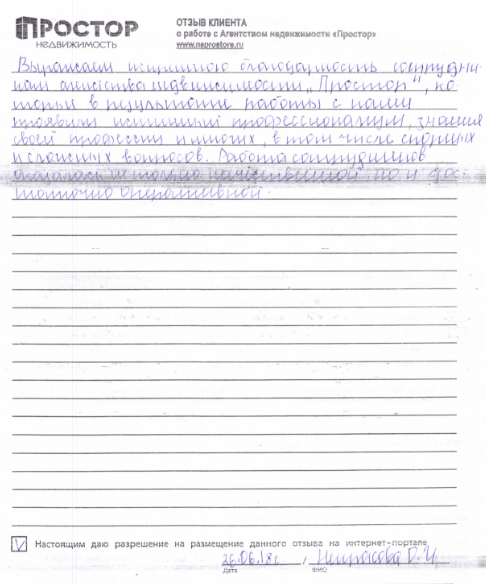 ПРОСТОР
НЕДВИЖИМОСТЬ
ОТЗЫВ КЛИЕНТА
о работе с Агентством недвижимости «Простор»
www.naprostore.ru
Выражаем искреннюю благодарность сотрудни-
кам агенства недвижимости „Простор", ко-
торые в результате работы с нами
проявили истинный профессионализм, знания
своей профессии и многих, в том числе спорных
и сложных вопросов. Работа сотрудников
оказалась не только качественной но и дос-
таточно оперативной.
V Настоящим даю разрешение на размещение данного отзыва на интернет-портале
26.06.18г. / Некрасова О. И.
Дата ФИО